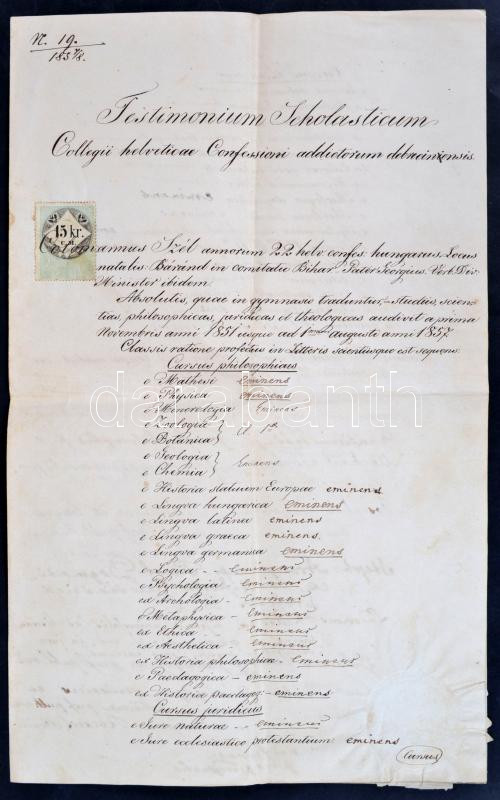 N. 19.
1857/8.
Testimonium Scholasticum
Collegii helveticae Confessioni addictorum debreinensis
15 kr.
C.M.
Colomannus Szél annorum 22 helv: confes: hungarus. Locus
natalis: Báránd in comitatu Bihar Pater Georgius Verb. Div.
Minister ibidem.
Absolutis, quae in gymnasio traduntur, studiis, scien-
tias, philosophicas, juridicas et theologicas audivit a prima
Novembris anni 1851 usque ad 1 augusti anni 1857.
Classis ratione profectus in Litteris scientiisque est sequens:
Cursus philosophicus
e Mathesi eminens
e Physica eminens
e Minerologia eminens
e Zoologia
e Botanica
e Geologia
e Chemia eminens
e Historia statuum Europae eminens
e Lingva hungarica eminens
e Lingva latina eminens
e Lingva graeca eminens.
e Lingva germanica eminens
e Logica - eminens
e Psychologia eminens
ex Archologia - eminens
e Metaphysica - eminens
ex Ethica eminens
ex Aesthetica - eminens
ex Historia philosophica - eminens
e Paedagogica - eminens
ex Historica paedagog: - eminens
Cursus juridicus
e Jure naturae - eminens
e Jure ecclesiastico protestantium eminens
Cursus
darabanth